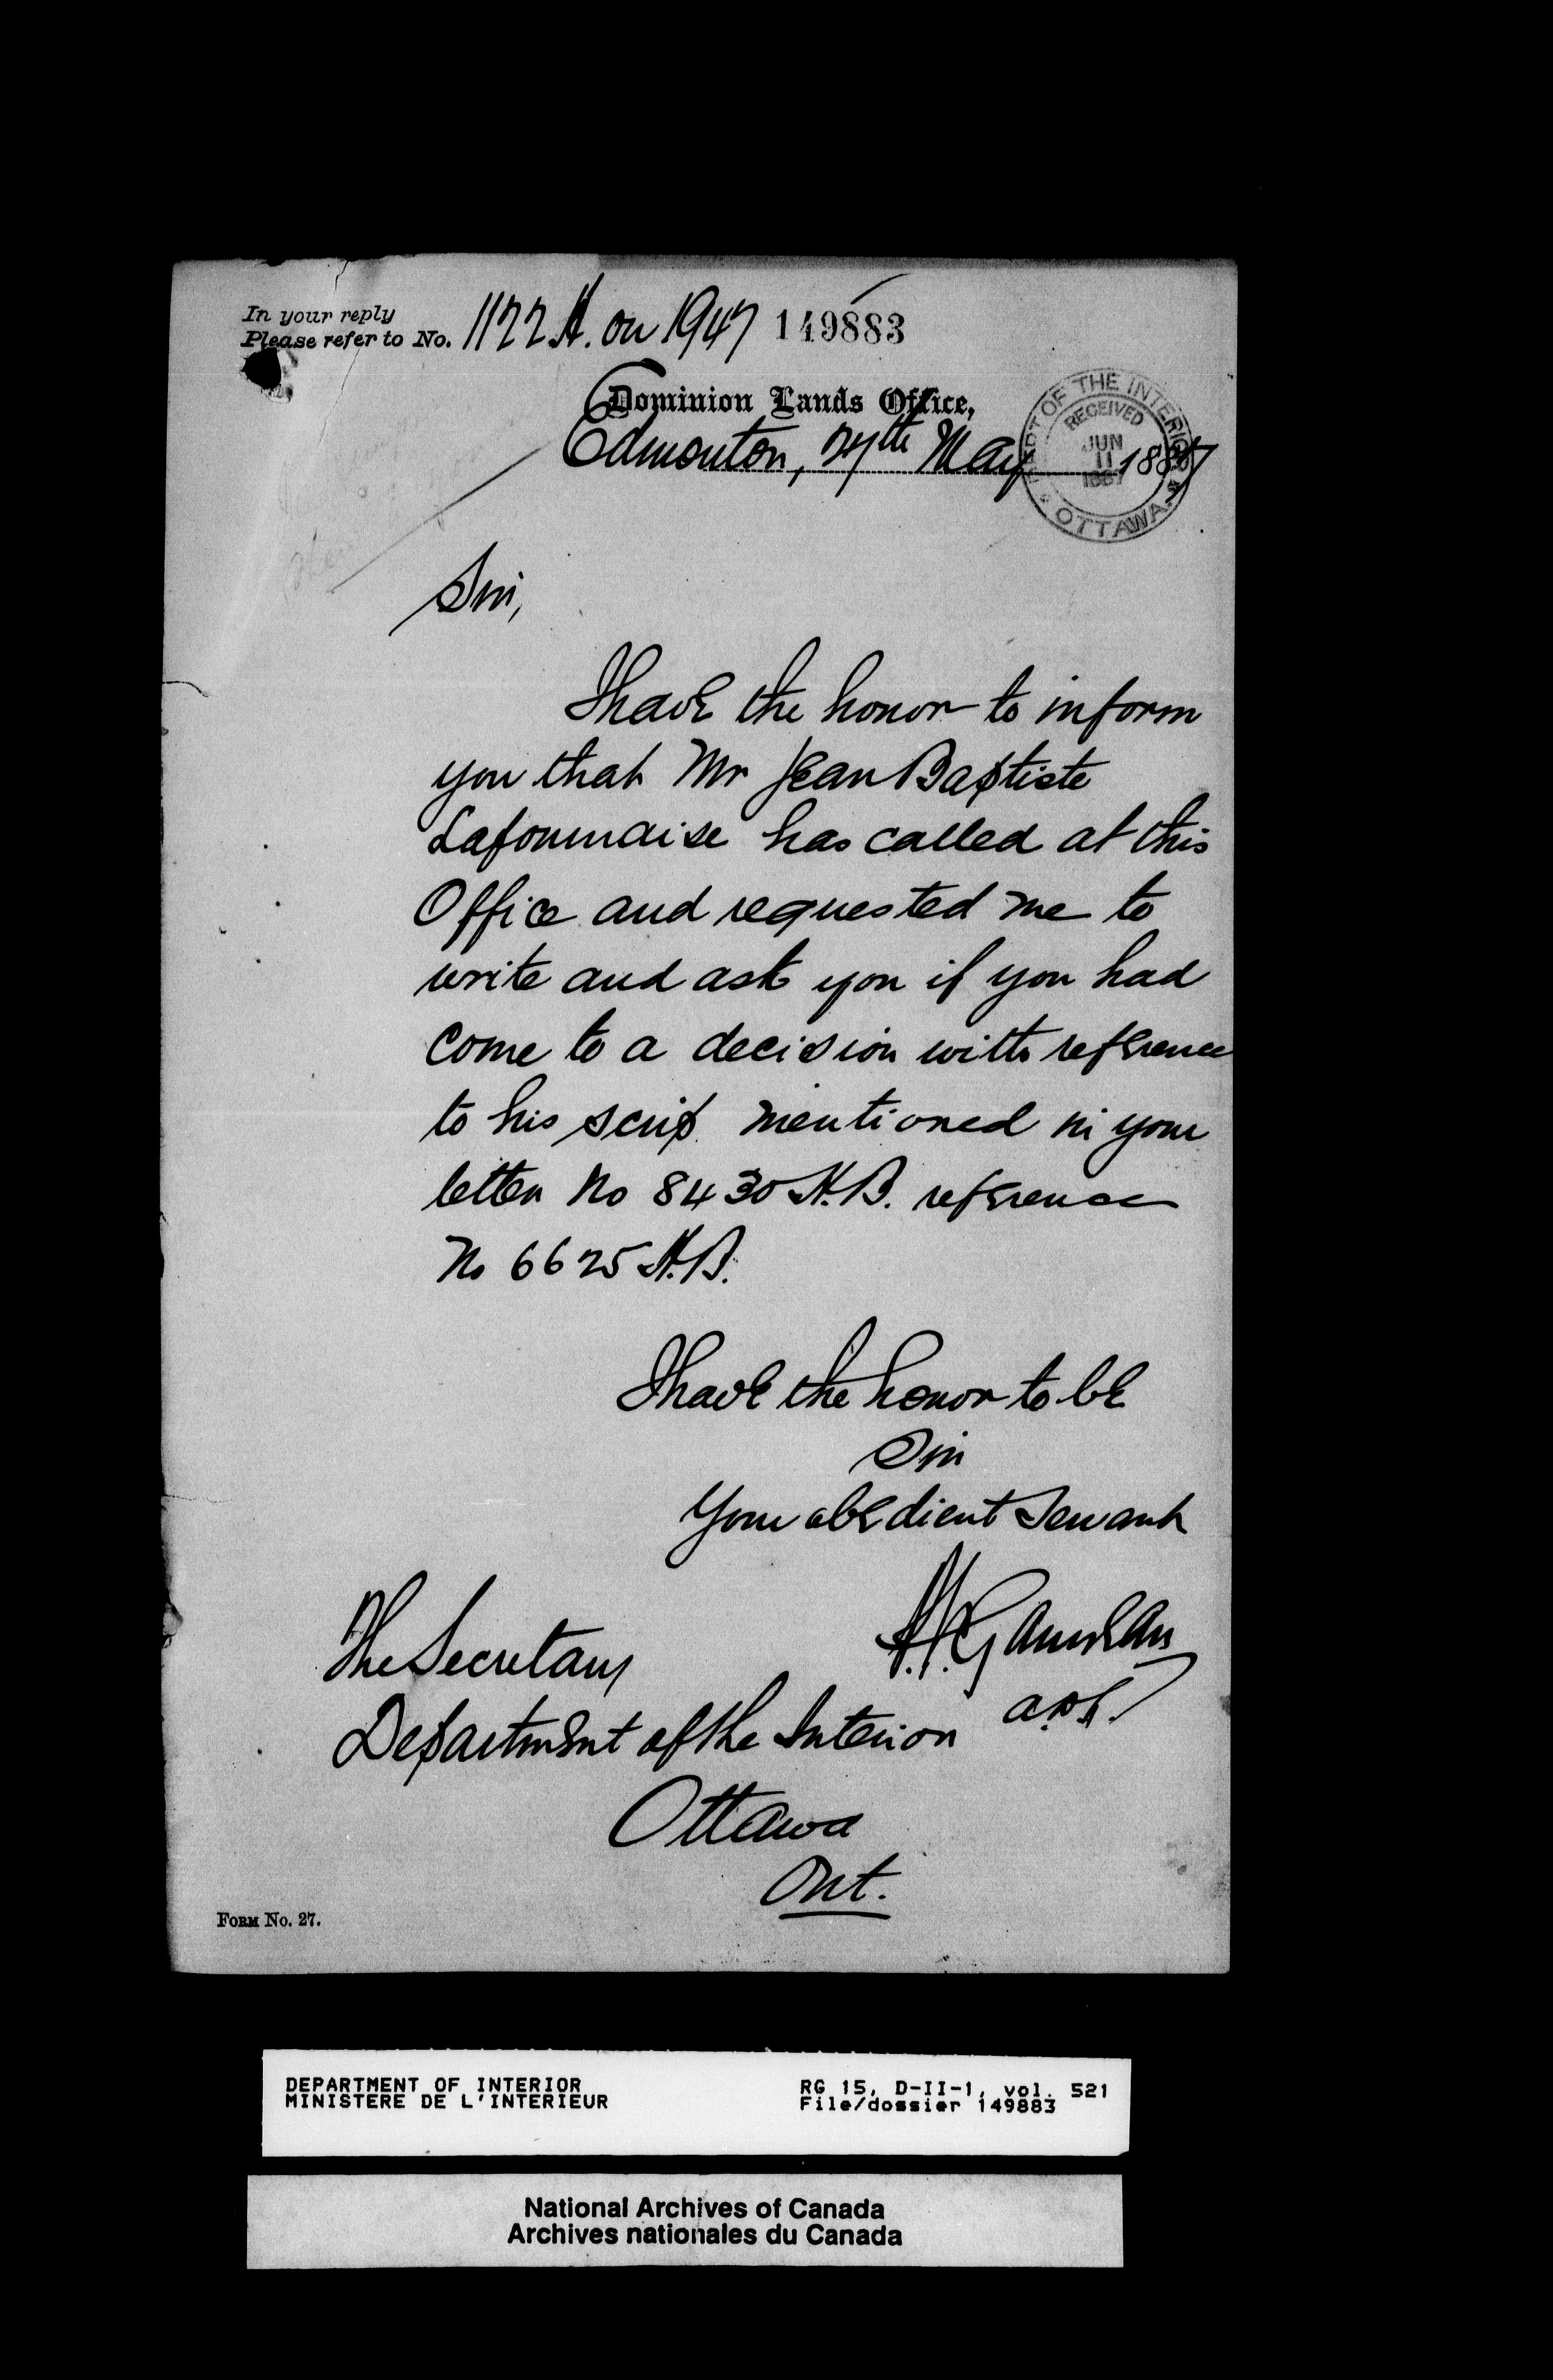 In your reply
Please refer to No. 1122 A. on 1947 149883
Dominion Lands Office,
Edmonton, 27th May 1887
DEPT OF THE INTERIOR
RECEIVED
JUN
11
1887
OTTAWA
Sir,
I have the honor to inform
you that Mr Jean Baptiste
Lafournaise has called at this
Office and requested me to
write and ask you if you had
come to a decision with reference
to his scrip mentioned in your
letter No 8430 H.B. reference
No 6625 H.B.
I have the honor to be
Sir
Your obedient Servant
The Secretary
Department of the Interior
Ottawa
Ont.
FORM No. 27.
DEPARTMENT OF INTERIOR
MINISTERE DE L'INTERIEUR
RG 15, D-II-1, vol. 521
File/dossier 149883
National Archives of Canada
Archives nationales du Canada